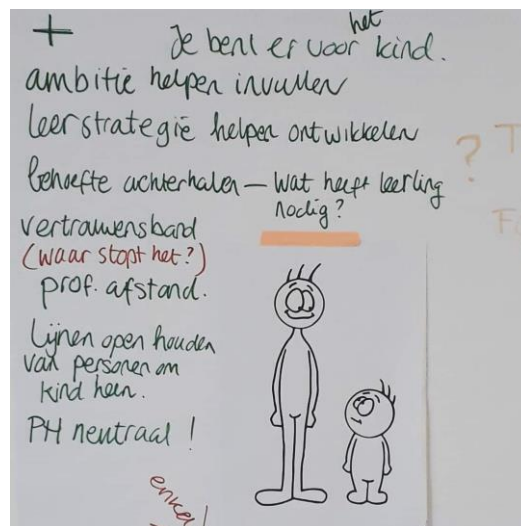 +
Je bent er voor het kind.
ambitie helpen invullen
leerstrategie helpen ontwikkelen
behoefte achterhalen – wat heeft leerling
nodig?
vertrouwensband
(waar stopt het?)
prof. afstand.
Lijnen open houden
van personen om
kind heen.
PH neutraal !
enkel !
? T